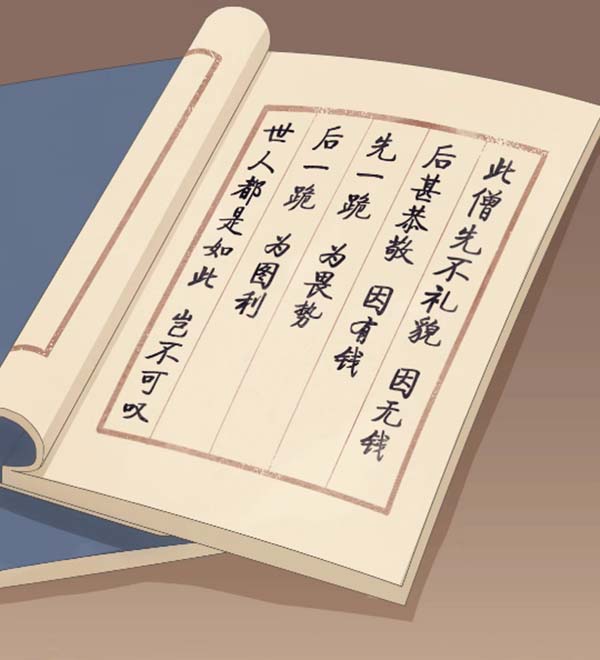 此僧先不礼貌 因无钱
后甚恭敬 因有钱
先一跪 为畏势
后一跪 为图利
世人都是如此 岂不可叹